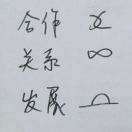 合作
关系 ∞
发展